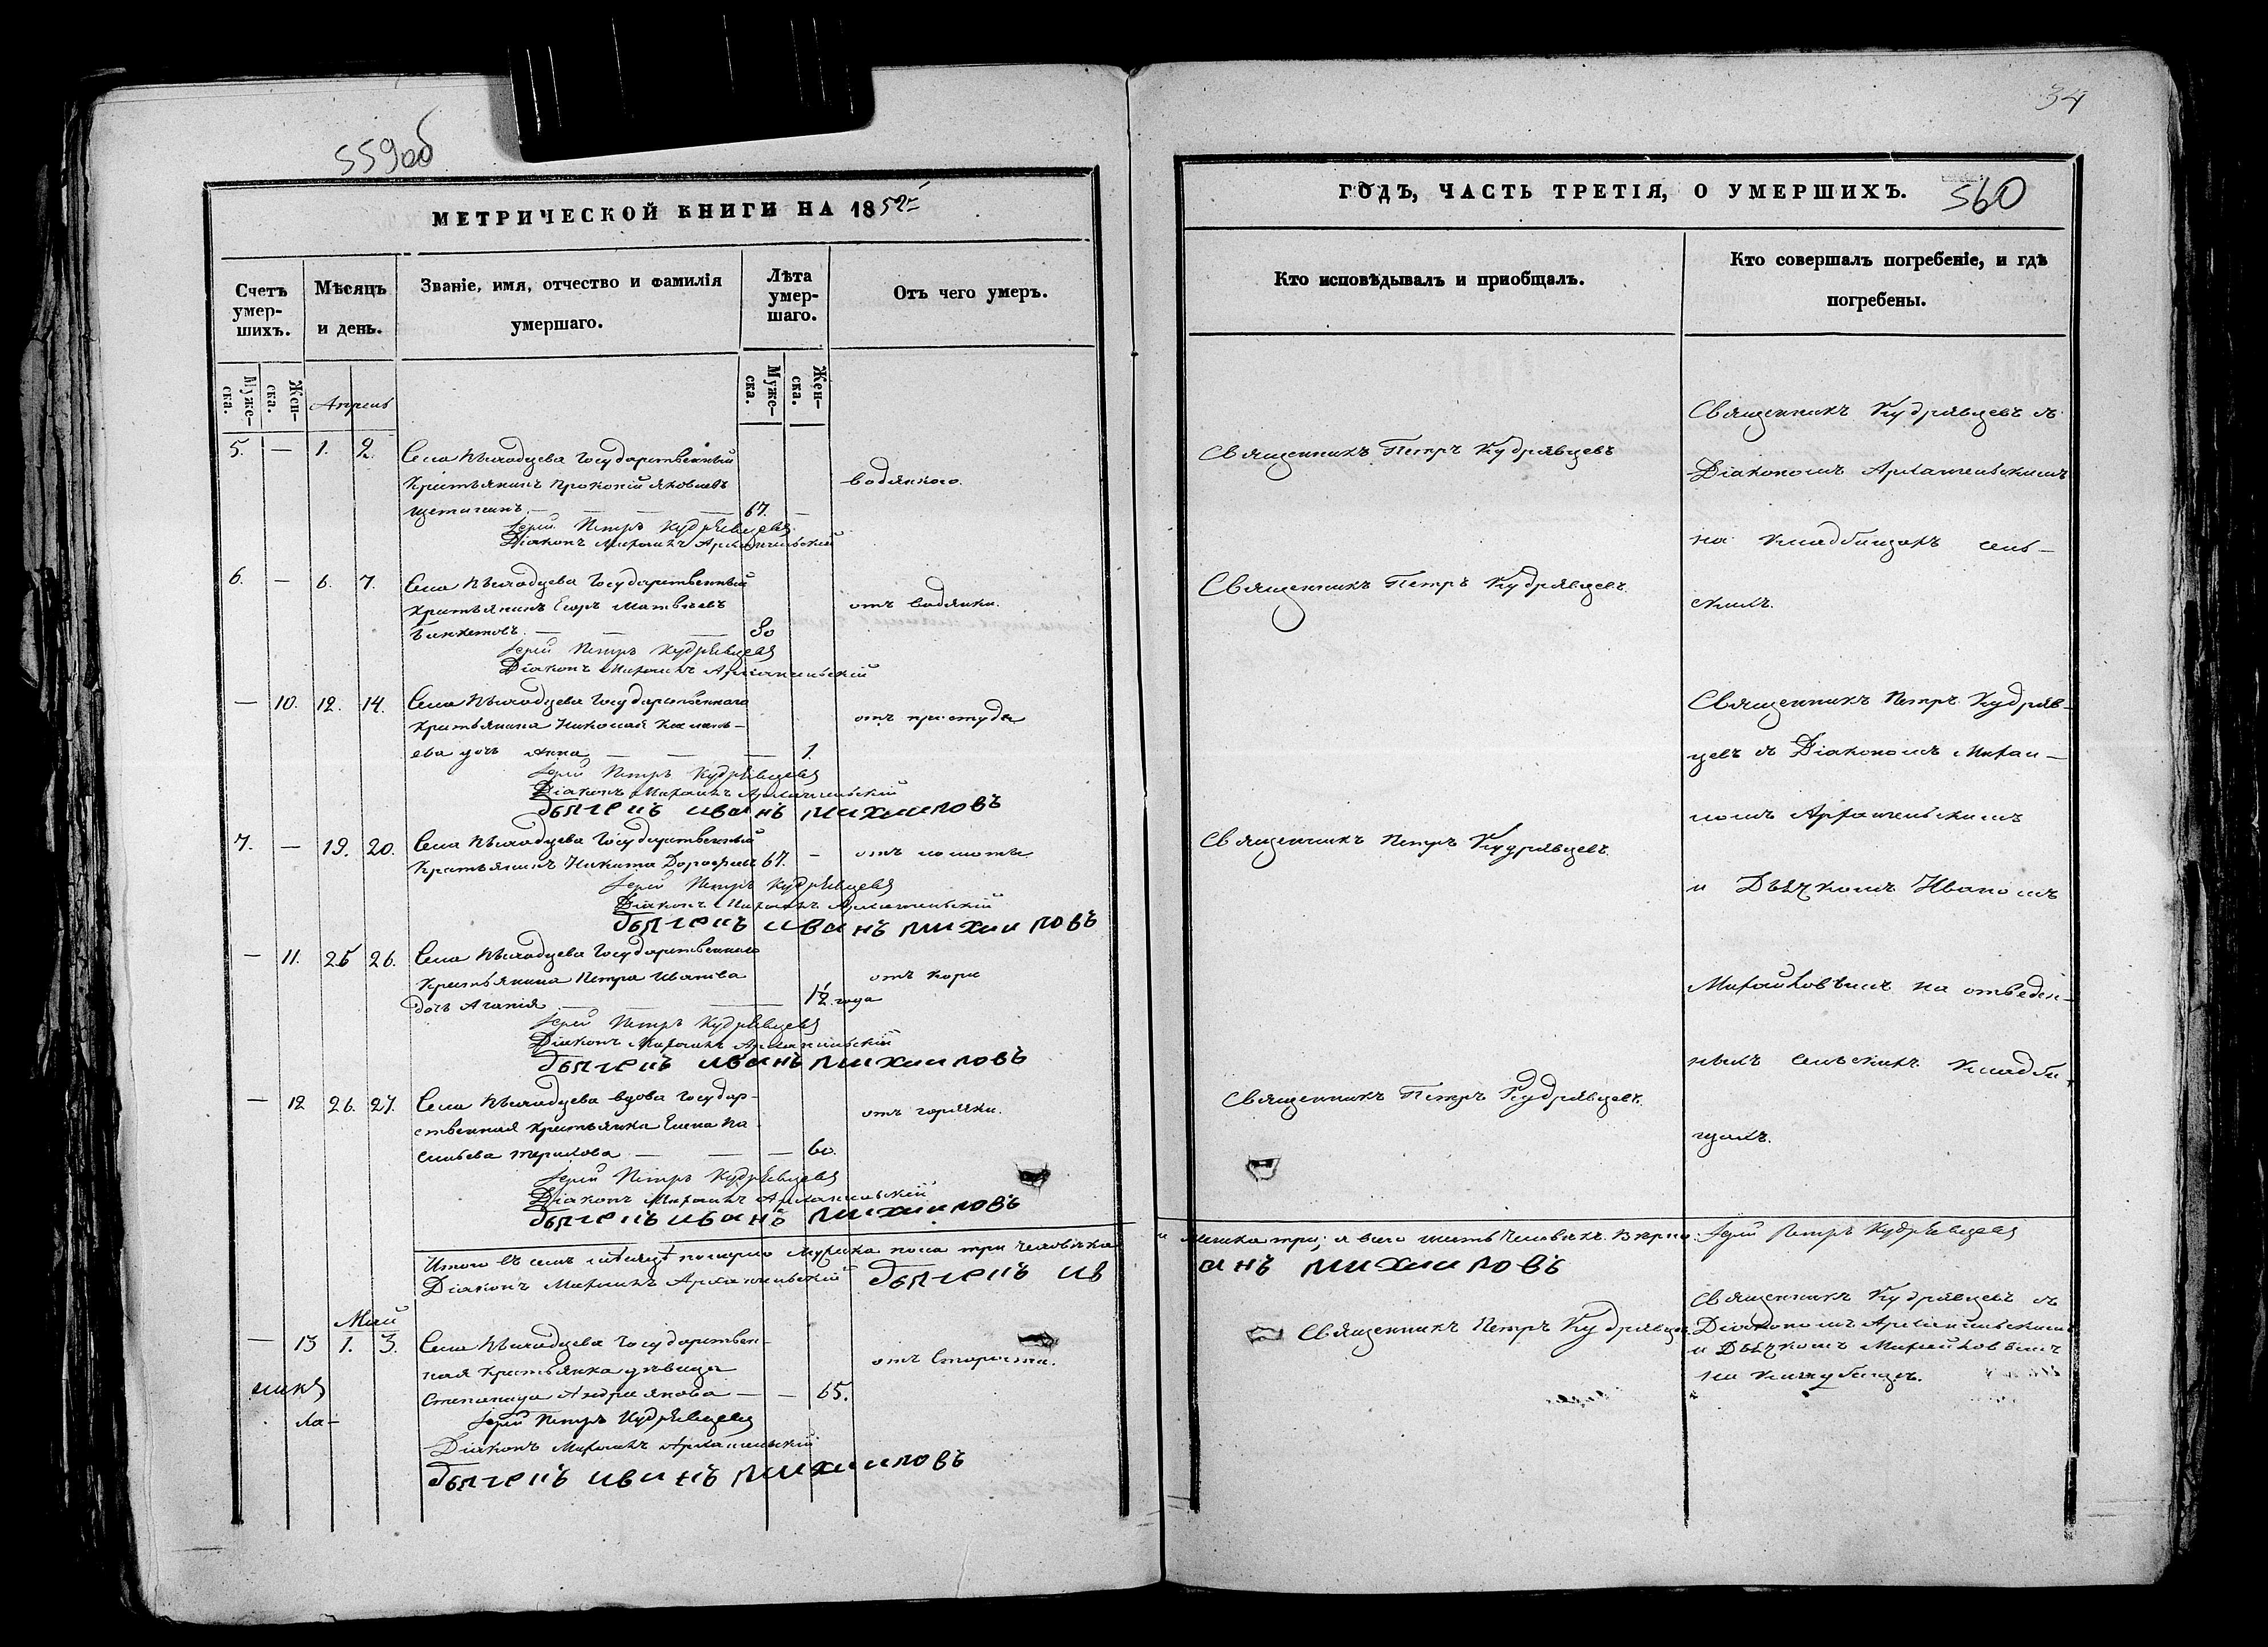 559об
МЕТРИЧЕСКОЙ КНИГИ НА 1852й
Счетъ умер- шихъ.
Мѣсяцъ и день.
Званіе, имя, отчество и фамилія умершаго.
Лѣта умер- шаго.
Отъ чего умеръ.
Муже- ска.
Жен- ска.
Апрель
Муже- ска.
Жен- ска.
5. — 1. 2. Села Государственный
Крестьянинъ Прокопій Яковлевъ водянаго.
67. —
Іерей Петръ Кудрявцевъ
Діаконъ Михаилъ Архангельскій
6. — 6. 7. Села Государственный
Крестьянинъ Егоръ Матвѣевъ отъ водянки.
— — 80
Іерей Петръ Кудрявцевъ
Діаконъ Михаилъ Архангельскій
— 10. 12. 14. Села Государственнаго
Крестьянина Николая отъ простуды
ева дочь Анна — — — 1.
Іерей Петръ Кудрявцевъ
Діаконъ Михаилъ Архангельскій
дьячекъ иванъ михаиловъ
7. — 19. 20. Села Государственный
Крестьянинъ Никита Дорофѣевъ 67. — отъ
Іерей Петръ Кудрявцевъ
Діаконъ Михаилъ Архангельскій
дьячекъ иванъ михаиловъ
— 11. 25 26. Села Государственнаго
Крестьянина Петра Иванова отъ кори
дочь Агапія — — 1½ года
Іерей Петръ Кудрявцевъ
Діаконъ Михаилъ Архангельскій
дьячекъ иванъ михаиловъ
— 12 26. 27. Села вдова Государ-
ственная Крестьянка Елена Ва отъ горячки.
сильева — — — 60.
Іерей Петръ Кудрявцевъ
Діаконъ Михаилъ Архангельскій
дьячекъ иванъ михаиловъ
Итого въ семъ мѣсяцѣ померло Мужска пола три человѣка
Діаконъ Михаилъ Архангельскій дьячекъ ив
Май
— 13 1. 3. Села Государствен-
ная Крестьянка дѣвица отъ старости.
Степанида Андріянова — — 65.
Іерей Петръ Кудрявцевъ
Діаконъ Михаилъ Архангельскій
дьячекъ иванъ михаиловъ
34
ГОДЪ, ЧАСТЬ ТРЕТІЯ, О УМЕРШИХЪ.
560
Кто исповѣдывалъ и пріобщалъ.
Кто совершалъ погребеніе, и гдѣ погребены.
Священникъ Петръ Кудрявцевъ
Священникъ Петръ Кудрявцевъ.
Священникъ Петръ Кудрявцевъ.
Священникъ Петръ Кудрявцевъ.
Священникъ Кудрявцевъ съ
Діакономъ Архангельскимъ
на кладбищахъ сель-
скихъ.
Священникъ Петръ Кудряв-
цевъ съ Діакономъ Михаи-
ломъ Архангельскимъ
и Дьячкомъ Иваномъ
Михайловымъ на отведен-
ныхъ сельскихъ кладби
щахъ.
и женска три; а всего шесть человѣкъ. Іерей Петръ Кудрявцевъ
анъ михаиловъ
Священникъ Петръ Кудрявцевъ
Священникъ Кудрявцевъ съ
Діакономъ Архангельскимъ
и Дьячкомъ Михайловымъ
на кладбищѣ.